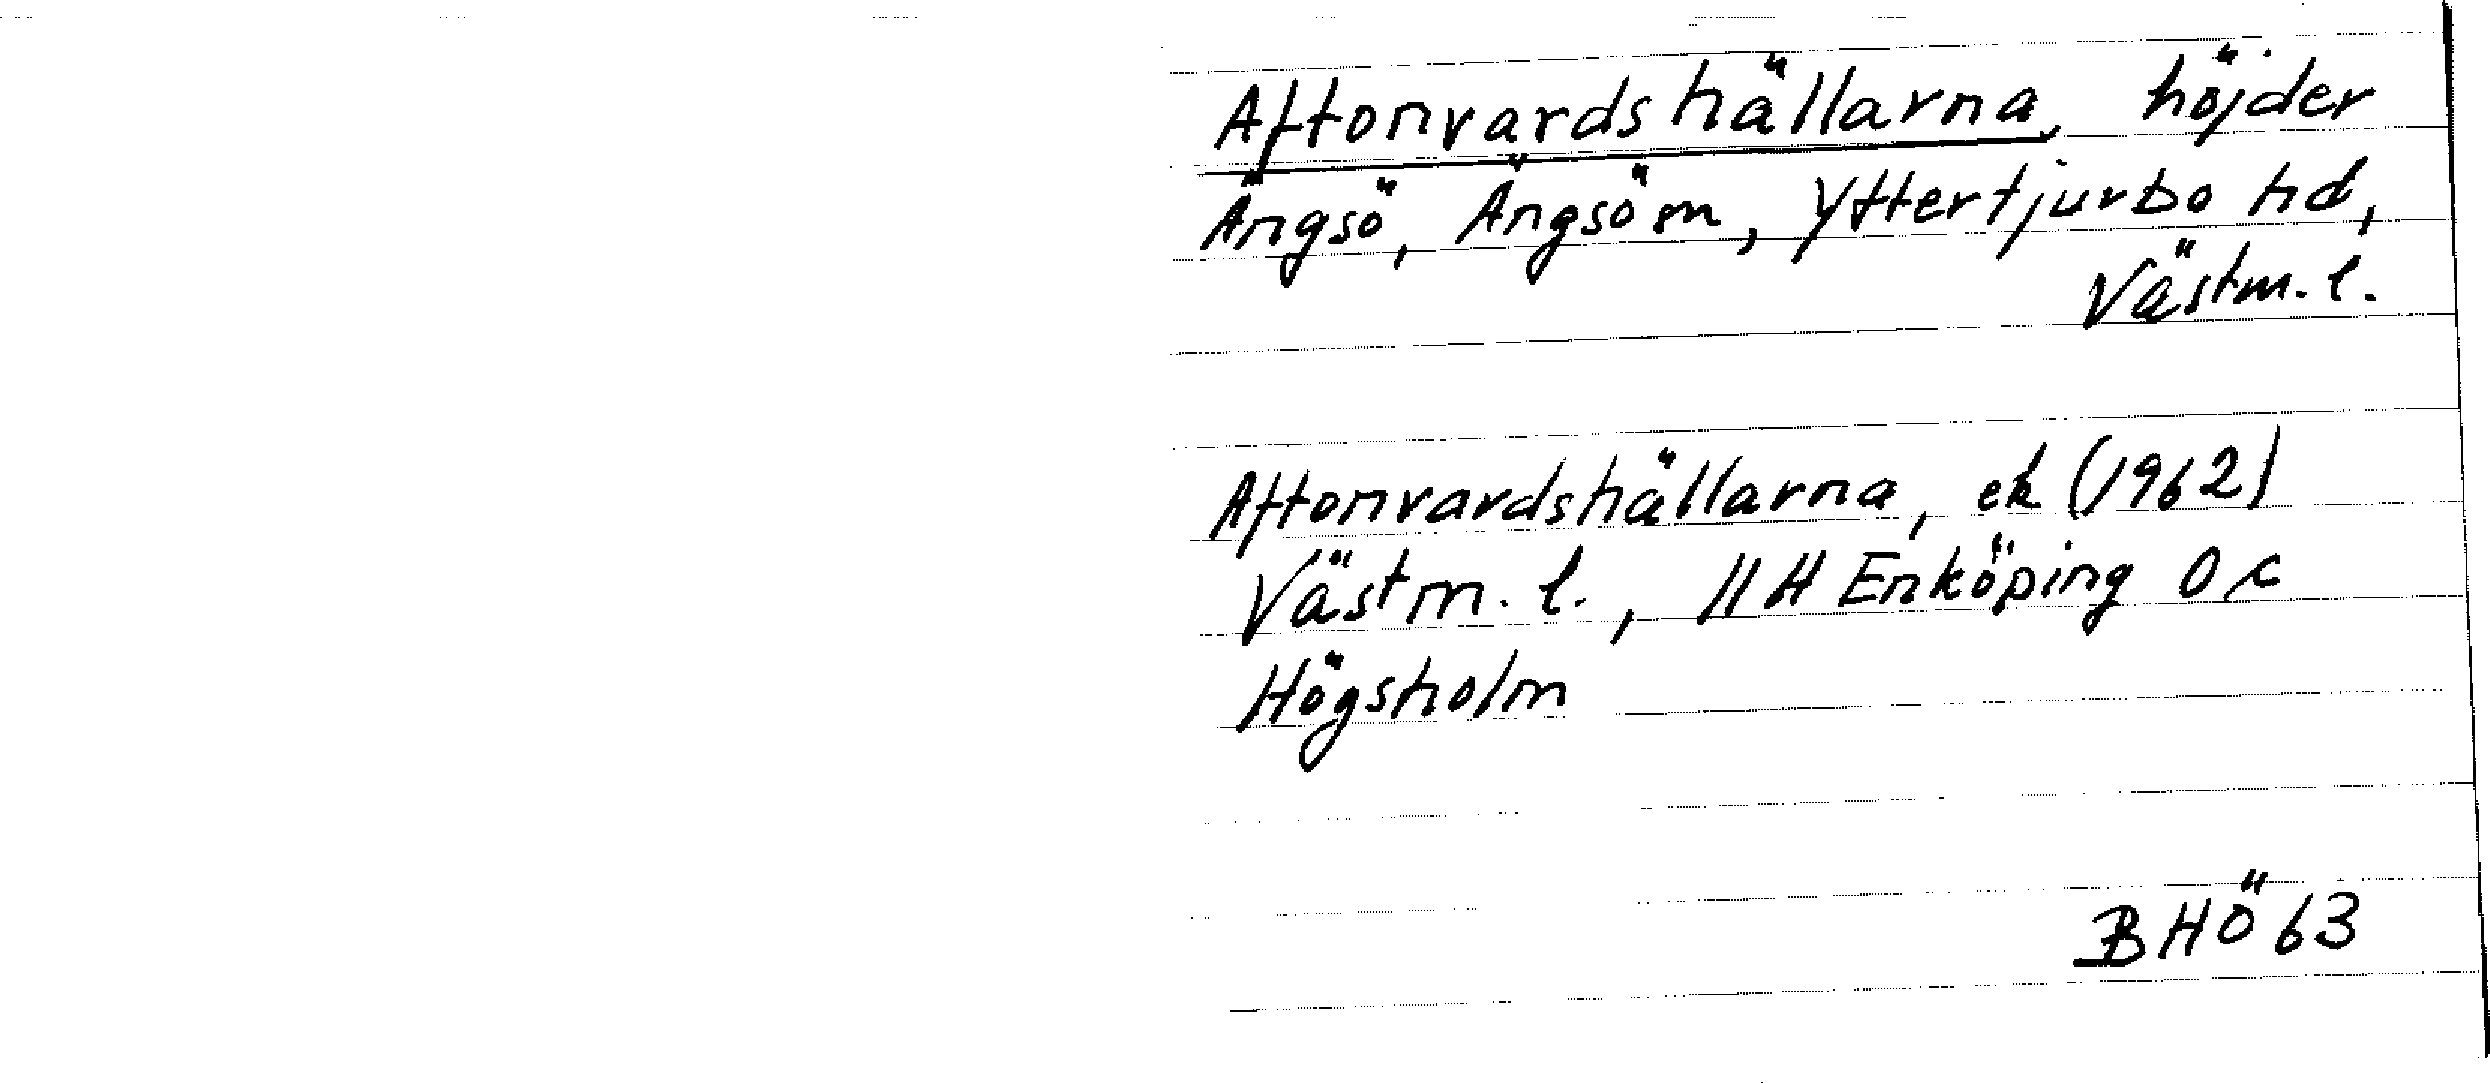 Aftonvardshällarna, höjder
Ängsö, Ängsö sn, Yttertjurbo hd,
Västm. l.
Aftonvardshällarna, ek (1962)
Västm. l., 11H Enköping 0c
Högsholm
BHÖ 63